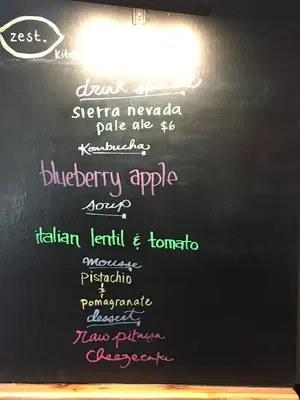 zest.
drink special
sierra nevada
pale ale $6
Kombucha
blueberry apple
soup
italian lentil & tomato
mousse
pistachio
&
pomagranate
dessert
raw pitaya
cheezecake